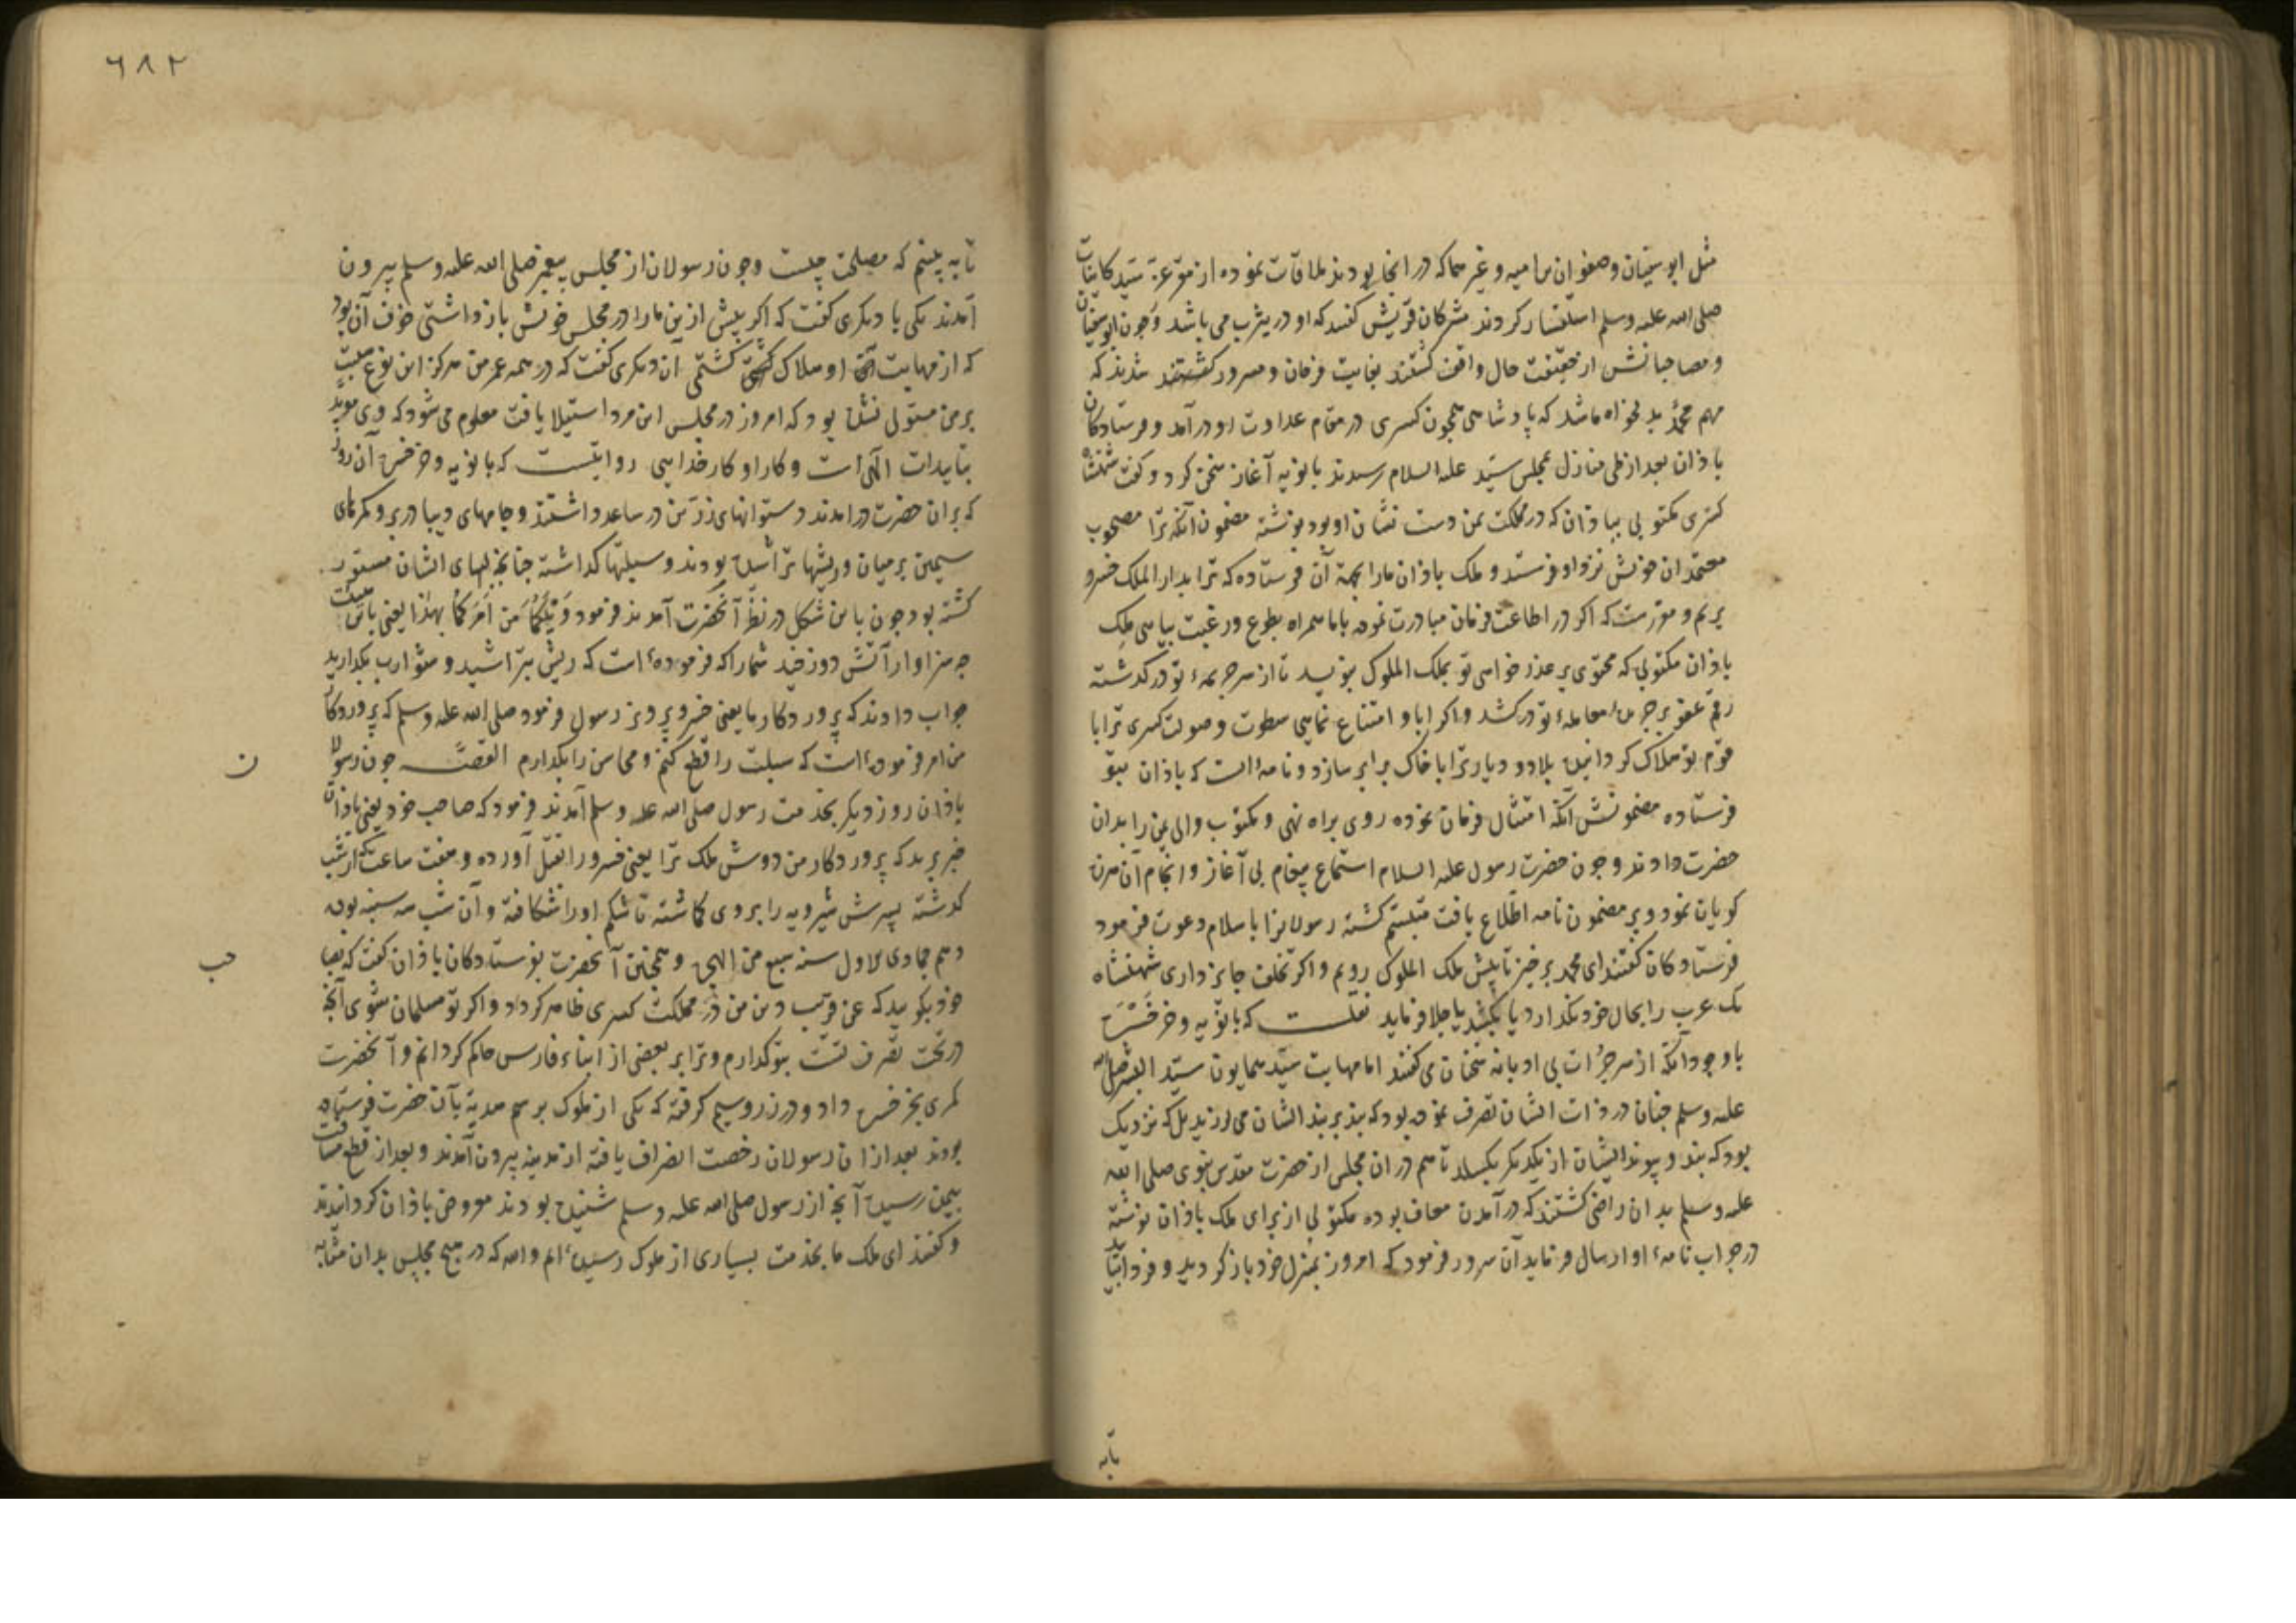 مثل ابوسفیان و صفوان بن امیه و غیرهما که در انجا بودند ملاقات نموده از مقر عزت سید کاینات
صلی الله علیه وسلم استفسار کردند مشرکان قریش گفتند که او در یثرب می باشد و چون ابوسفیان
و مصاحبانش از حقیقت حال واقف گشتند بغایت فرحان و مسرور شدند که
مهم محمد بدلخواه ما شد که پادشاهی همچون کسری در مقام عداوت او درآمد و فرستادکان
باذان بعد از طی منازل بمجلس سید علیه السلام رسیدند بابویه آغاز سخن کرد و گفت شهنشاه
کسری مکتوبی بباذان که در مملکت یمن دست نشان او بود نوشته مضمون آنکه ترا مصحوب
معتمدان خویش نزد او فرستد و ملک باذان ما را بجهة آن فرستاده که ترا بدار الملک خسرو
بریم و مقررست که اکر در اطاعت فرمان مبادرت نموده با ما همراه بطوع و رغبت بیایی ملک
باذان مکتوبی که محتوی بر عذر خواهی تو بملک الملوک بنویسد تا از سر جریمهٔ تو در کذشته
رقم عفو بر جریدهٔ معاملهٔ تو درکشد و اکر ابا و امتناع نمایی سطوت و صولت کسری ترا با
قوم تو هلاک کردانیده بلاد و دیار ترا با خاک برابر سازد و نامه ایست که باذان بتو
فرستاده مضمونش آنکه امتثال فرمان نموده روی براه نهی و مکتوب والی یمن را بدان
حضرت دادند و چون حضرت رسول علیه السلام استماع پیغام بی آغاز و انجام آن هرزه
کویان نمود و بر مضمون نامه اطلاع یافت متبسم کشته رسولانرا باسلام دعوت فرمود
فرستادکان گفتند ای محمد برخیز تا پیش ملک الملوک رویم و اکر تخلف جایز داری شهنشاه
یک عرب را بحال خود نکذارد یا بکشد یا جلا فرماید نقلست که بابویه و خرخسره
با وجود آنکه از سر جرأت بی ادبانه سخنان می گفتند اما مهابت سید همایون سید البشر صلی الله
علیه وسلم چنان در ذات ایشان تصرف نموده بود که بند بر بند ایشان می لرزید بلکه نزدیک
بود که بند و پیوند ایشان از یکدیکر بکسلد تا هم در ان مجلس از حضرت مقدس نبوی صلی الله
علیه وسلم بدان راضی گشتند که در آمدن معاف بوده مکتوبی از برای ملک باذان نوشته
در جواب نامهٔ او ارسال فرماید آن سرور فرمود که امروز بمنزل خود باز کردید و فردا بیایید
تا به
۶۸۲
تا به بینم که مصلحت چیست و چون رسولان از مجلس پیغمبر صلی الله علیه وسلم بیرون
آمدند یکی با دیکری گفت که اکر بیش ازین ما را در مجلس خویش باز داشتی خوف آن بود
که از مهابت او هلاک کشتمی آن دیکری گفت که در همه عمر من هرکز این نوع هیبت
بر من مستولی نشده بود که امروز در مجلس این مرد استیلا یافت معلوم می شود که وی موید
بتاییدات الهی است و کار او کار خدایی روایتست که بابویه و خرخسره آن روز
که بران حضرت درامدند دستوانهای زرین در ساعد داشتند و جامهای دیبا در بر و کمرهای
سیمین بر میان و ریشها تراشیده بودند و سبلتها کذاشته چنانچه لبهای ایشان مستور
کشته بود چون باین شکل در نظر آنحضرت آمدند فرمود ویلکما من امرکما بهذا یعنی باین هیئت
جواب دادند که پروردکار ما یعنی خسرو پرویز رسول فرمود صلی الله علیه وسلم که پروردکار
من امر فرموده است که سبلت را قطع کنم و محاسن را بکذارم القصه چون رسولان
باذان روز دیکر بخدمت رسول صلی الله علیه وسلم آمدند فرمود که صاحب خود یعنی باذان
خبر برید که پروردکار من دوش ملک ترا یعنی خسرو را بقتل آورده و هفت ساعت که از شب
کذشته پسرش شیرویه را بر وی کماشته تا شکم او را شکافته و آن شب سه شنبه بوده
دهم جمادی الاول سنه سبع من الهجرة و همچنین آنحضرت بفرستادکان باذان گفت که بصاحب
خود بکویید که عن قریب دین من در مملکت کسری ظاهر کردد و اکر تو مسلمان شوی آنچه
در تحت تصرف تست بتو کذارم و ترا بر بعضی از ابناء فارس حاکم کردانم و آنحضرت
کمری بخرخسره داد و در زر و سیم کرفته که یکی از ملوک برسم هدیه بآن حضرت فرستاده
بودند بعد ازان رسولان رخصت انصراف یافته از مدینه بیرون آمدند و بعد از قطع مسافت
بیمن رسیده آنچه از رسول صلی الله علیه وسلم شنیده بودند معروض باذان کردانیدند
و گفتند ای ملک ما بخدمت بسیاری از ملوک رسیده ایم والله که در هیچ مجلس بدان مثابه
ن
حب